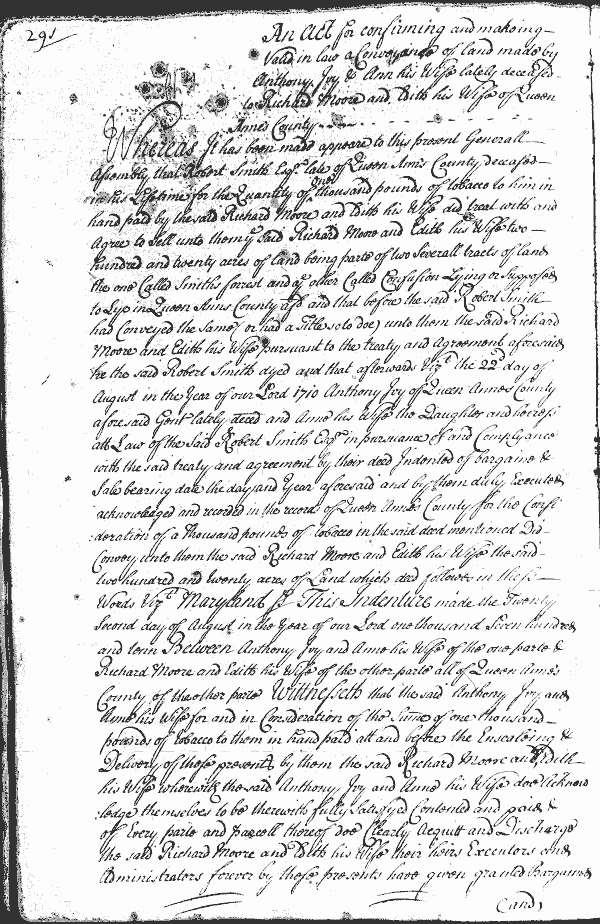 291
An Act for confirming and makeing
Valid in law a Conveyance of land made by
Anthony Ivy & Ann his Wife lately deceased
to Richard Moore and Edith his Wife of Queen
Anne's County
Whereas It has been made appeare to this present Generall
Assembly that Robert Smith Esqr. late of Queen Ann's County deceased
in his Lifetime for the Quantity of one thousand pounds of tobacco to him in
hand paid by the said Richard Moore and Edith his Wife did treat with and
Agree to sell unto them ye said Richard Moore and Edith his Wife two
hundred and twenty acres of land being parte of two severall tracts of land
the one Called Smiths forrest and ye other Called Confusion Lying or Supposed
to Lye in Queen Anns County afsd and that before the said Robert Smith
had Conveyed the Same or had a Title so to doe unto them the said Richard
Moore and Edith his Wife pursuant to the treaty and Agreement aforesaid
he the said Robert Smith dyed and that afterwards Vizt. the 22d day of
August in the Year of our Lord 1710 Anthony Ivy of Queen Annes County
aforesaid Gent lately deced and Anne his Wife the Daughter and heiress
att Law of the Said Robert Smith Esqr. in pursuance of and Complyance
with the said treaty and agreement by their deed Indented of bargaine &
Sale bearing date the day and Year aforesaid and by them duly Executed
acknowledged and recorded in the records of Queen Anne's County for the Consi
deration of a thousand pounds of tobacco in the said deed mentioned Did
Convey unto them the said Richard Moore and Edith his Wife the said
two hundred and twenty acres of Land which deed followes in these
Words Vizt. Maryland ss This Indenture made the Twenty
Second day of August in the Year of our Lord one thousand Seven hundred
and tenn Between Anthony Ivy and Anne his Wife of the one parte &
Richard Moore and Edith his Wife of the other parte all of Queen Anne's
County of the other parte Wittnesseth that the said Anthony Ivy and
Anne his Wife for and in Consideration of the Sume of one thousand
pounds of tobacco to them in hand paid att and before the Ensealeing &
Delivery of these presents by them the said Richard Moore and Edith
his Wife wherewith the said Anthony Ivy and Anne his Wife doe Acknow
ledge themselves to be therewith fully Satisfyed Contented and paid &
of Every parte and parcell thereof doe Clearly Acquitt and Discharge
the said Richard Moore and Edith his Wife their heirs Executors and
Administrators forever by these presents have given granted Bargained
(and)